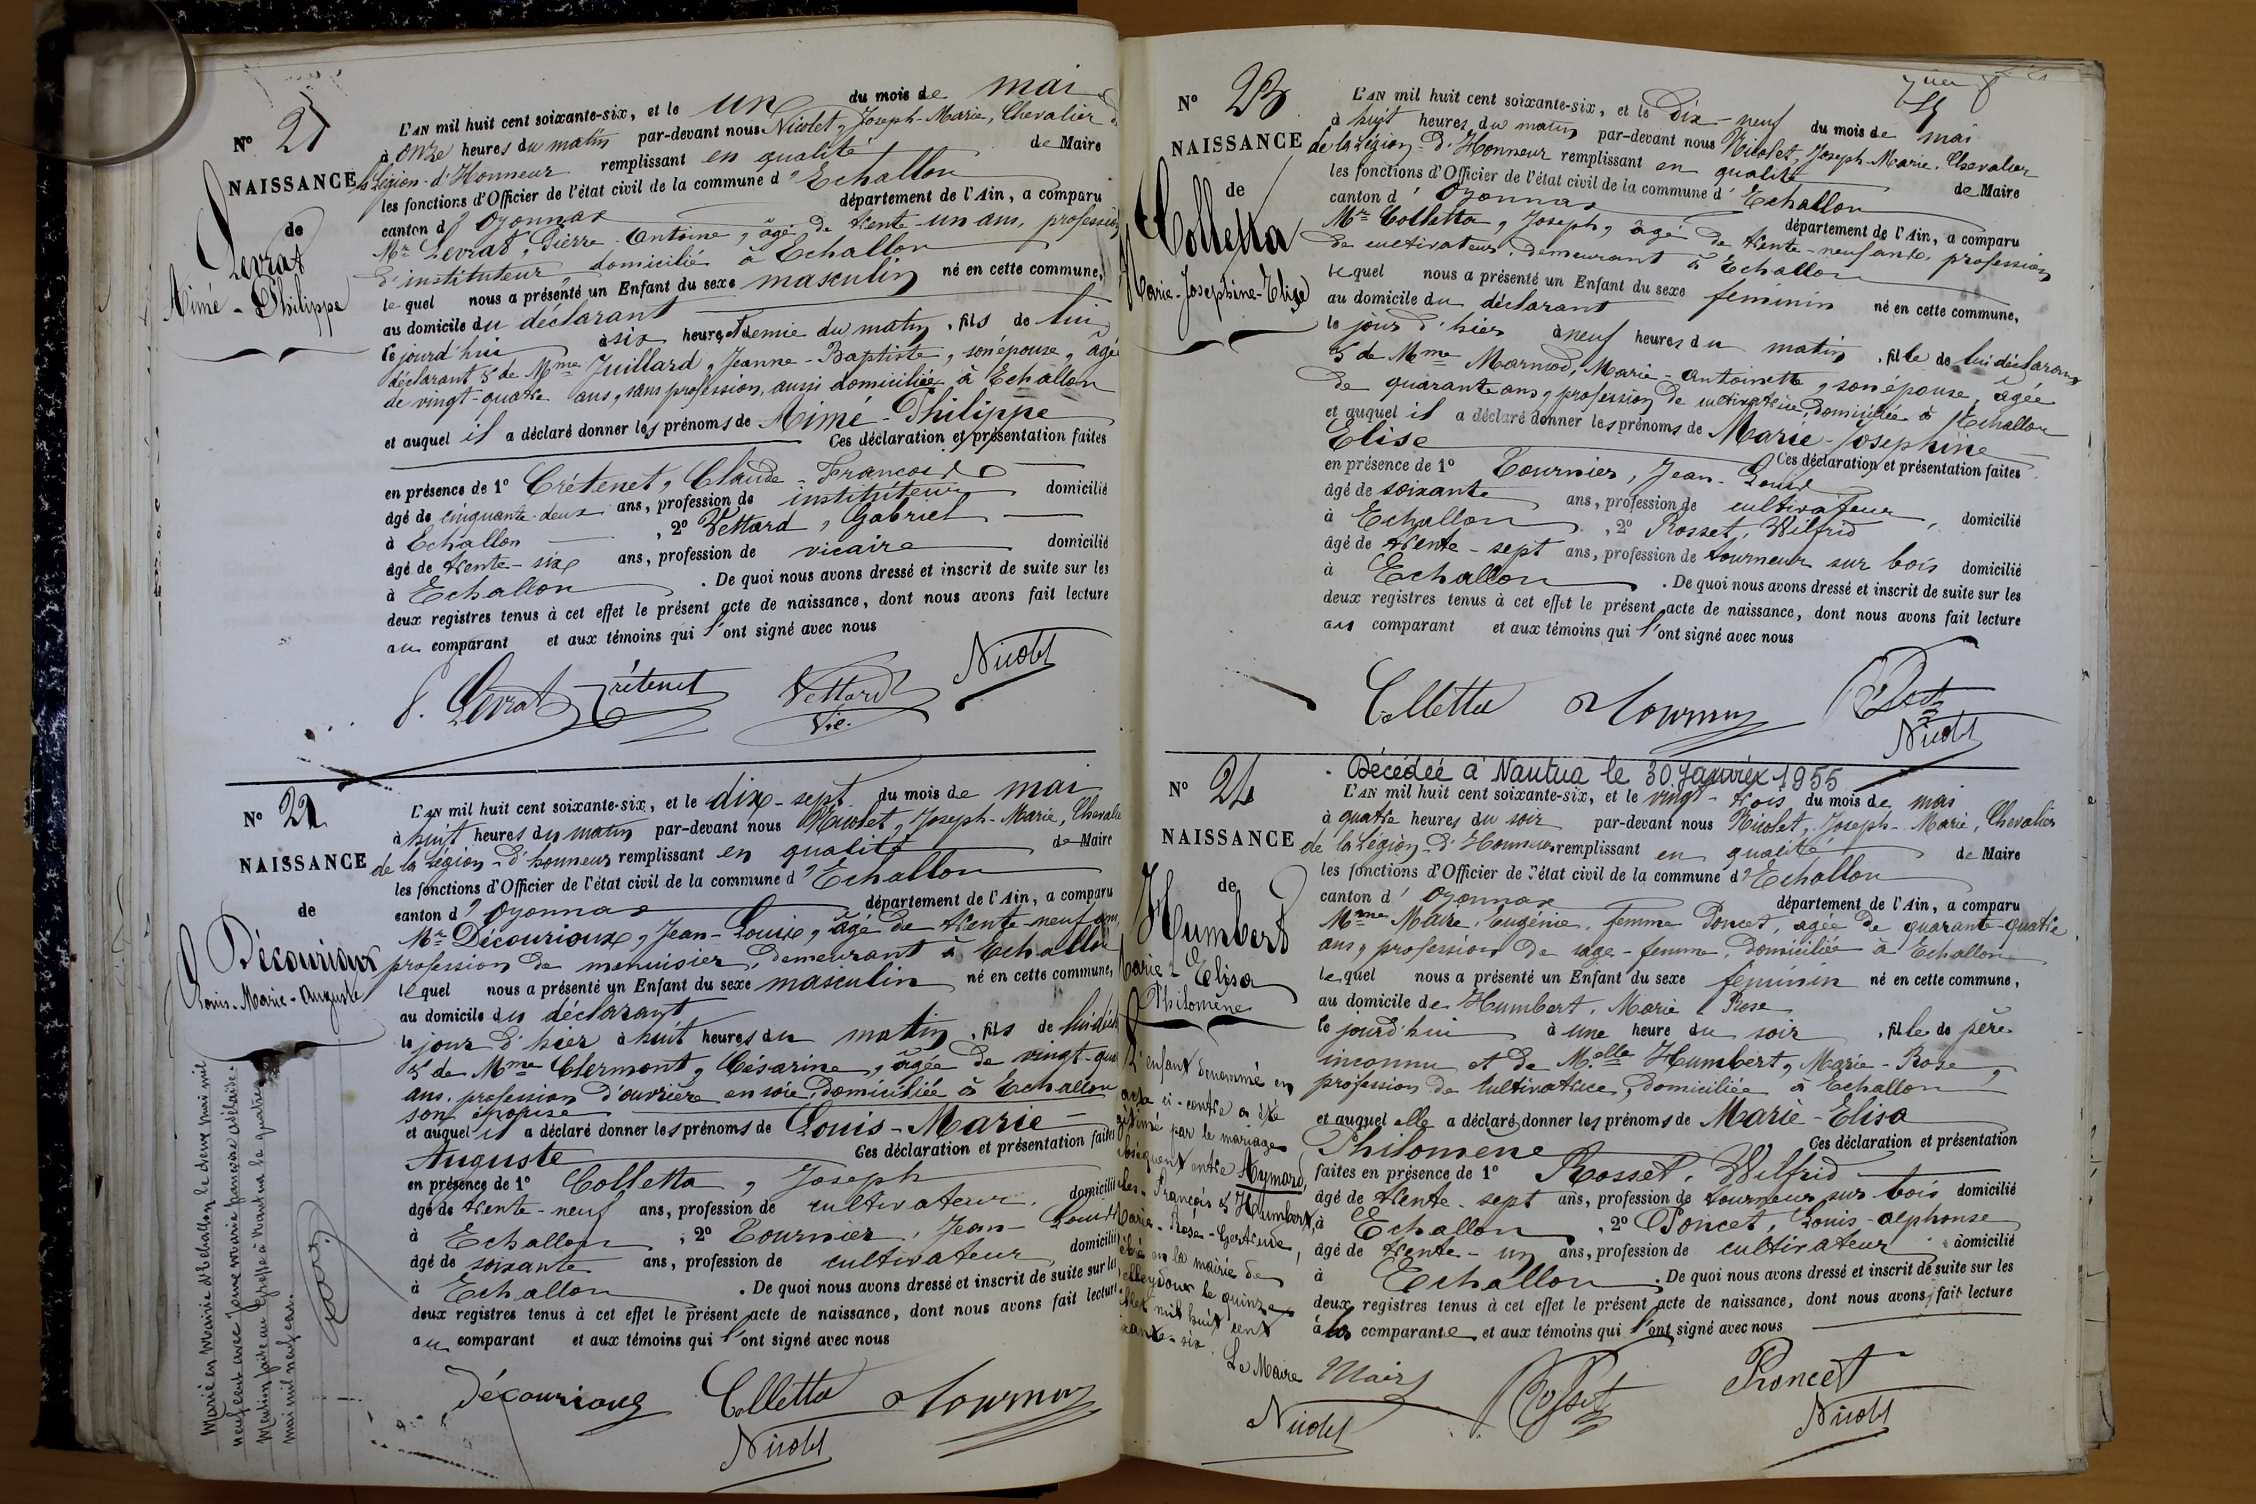 N° 21
NAISSANCE
de
Levrat
Aimé - Philippe
L'AN mil huit cent soixante-six, et le un du mois de mai
à onze heures du matin par-devant nous Nicolet, Joseph-Marie, Chevalier
Légion-d'Honneur remplissant en qualité de Maire
les fonctions d'Officier de l'état civil de la commune d'Echallon
canton d'Oyonnax département de l'Ain, a comparu
Mr Levrat, Pierre-Antoine, âgé de trente-un ans, profession
d'instituteur domicilié à Echallon
lequel nous a présenté un Enfant du sexe masculin né en cette commune,
au domicile du déclarant
le jourd'hui à six heures et demie du matin, fils de lui
déclarant & de Mme Juillard, Jeanne-Baptiste, son épouse, âgée
de vingt-quatre ans, sans profession, aussi domiciliée à Echallon
et auquel il a déclaré donner les prénoms de Aimé-Philippe
Ces déclaration et présentation faites
en présence de 1° Crétenet, Claude-François
âgé de cinquante-deux ans, profession de instituteur domicilié
à Echallon, 2° Vettard, Gabriel
âgé de trente-six ans, profession de vicaire domicilié
à Echallon. De quoi nous avons dressé et inscrit de suite sur les
deux registres tenus à cet effet le présent acte de naissance, dont nous avons fait lecture
au comparant et aux témoins qui l'ont signé avec nous
Nicolet
P. Levrat Crétenet Vettard
Vic.
N° 22
NAISSANCE
de
Décourioux
Louis-Marie-Auguste
Marié en mairie d'Echallon le deux mai mil
neuf cent avec Jeune Marie Françoise Adélaïde.
Mention faite au Greffe à Nantua le quatre
mai mil neuf cent.
L'AN mil huit cent soixante-six, et le dix-sept du mois de mai
à huit heures du matin par-devant nous Nicolet, Joseph-Marie, Chevalier
de la Légion-d'honneur remplissant en qualité de Maire
les fonctions d'Officier de l'état civil de la commune d'Echallon
canton d'Oyonnax département de l'Ain, a comparu
Mr Décourioux, Jean-Louis, âgé de trente-neuf ans,
profession de menuisier, demeurant à Echallon
lequel nous a présenté un Enfant du sexe masculin né en cette commune,
au domicile du déclarant
le jour d'hier à huit heures du matin, fils de lui décl
& de Mme Clermont, Césarine, âgée de vingt-qua
ans, profession d'ouvrière en soie, domiciliée à Echallon
son épouse
et auquel il a déclaré donner les prénoms de Louis-Marie-
Auguste Ces déclaration et présentation faites
en présence de 1° Colletta, Joseph
âgé de trente-neuf ans, profession de cultivateur, domicilié
à Echallon, 2° Tournier, Jean-Louis
âgé de soixante ans, profession de cultivateur, domicilié
à Echallon. De quoi nous avons dressé et inscrit de suite sur les
deux registres tenus à cet effet le présent acte de naissance, dont nous avons fait lecture
au comparant et aux témoins qui l'ont signé avec nous
Décourioux Colletta Tournier
Nicolet
N° 23
NAISSANCE
de
Colletta
Marie-Josephine-Elise
L'AN mil huit cent soixante-six, et le dix-neuf du mois de mai
à huit heures du matin par-devant nous Nicolet, Joseph-Marie, Chevalier
de la Légion-d'Honneur remplissant en qualité de Maire
les fonctions d'Officier de l'état civil de la commune d'Echallon
canton d'Oyonnax département de l'Ain, a comparu
Mr Colletta, Joseph, âgé de trente-neuf ans, profession
de cultivateur, demeurant à Echallon
lequel nous a présenté un Enfant du sexe féminin né en cette commune,
au domicile du déclarant
le jour d'hier à neuf heures du matin, fille de lui déclarant
& de Mme Marmod, Marie-Antoinette, son épouse, âgée
de quarante ans, profession de cultivatrice, domiciliée à Echallon
et auquel il a déclaré donner les prénoms de Marie-Josephine-
Elise Ces déclaration et présentation faites
en présence de 1° Tournier, Jean-Louis
âgé de soixante ans, profession de cultivateur, domicilié
à Echallon, 2° Rosset, Wilfrid
âgé de trente-sept ans, profession de tourneur sur bois domicilié
à Echallon. De quoi nous avons dressé et inscrit de suite sur les
deux registres tenus à cet effet le présent acte de naissance, dont nous avons fait lecture
au comparant et aux témoins qui l'ont signé avec nous
Colletta Tournier Rosset
Nicolet
Décédée à Nantua le 30 Janvier 1955
N° 24
NAISSANCE
de
Humbert
Marie-Elisa
Philomène
L'enfant dénommé en
acte ci-contre a été
gitimé par le mariage
bséquent entre Aymard,
les-François & Humbert,
Marie-Rose-Gertrude,
ébré en la mairie de
elleydoux le quinze
llet mil huit cent
xante-six.
Le Maire
Nicolet
L'AN mil huit cent soixante-six, et le vingt-trois du mois de mai
à quatre heures du soir par-devant nous Nicolet, Joseph-Marie, Chevalier
de la Légion-d'Honneur remplissant en qualité de Maire
les fonctions d'Officier de l'état civil de la commune d'Echallon
canton d'Oyonnax département de l'Ain, a comparu
Mme Maire, Eugénie, femme Poncet, âgée de quarante-quatre
ans, profession de sage-femme, domiciliée à Echallon
lequel nous a présenté un Enfant du sexe féminin né en cette commune,
au domicile de Humbert, Marie Rose
le jourd'hui à une heure du soir, fille de père
inconnu et de Melle Humbert, Marie-Rose,
profession de cultivatrice, domiciliée à Echallon
et auquel elle a déclaré donner les prénoms de Marie-Elisa
Philomène Ces déclaration et présentation
faites en présence de 1° Rosset, Wilfrid
âgé de trente-sept ans, profession de tourneur sur bois domicilié
à Echallon, 2° Poncet, Louis-Alphonse
âgé de trente-un ans, profession de cultivateur domicilié
à Echallon. De quoi nous avons dressé et inscrit de suite sur les
deux registres tenus à cet effet le présent acte de naissance, dont nous avons fait lecture
à la comparante et aux témoins qui l'ont signé avec nous
Maire Rosset Poncet
Nicolet